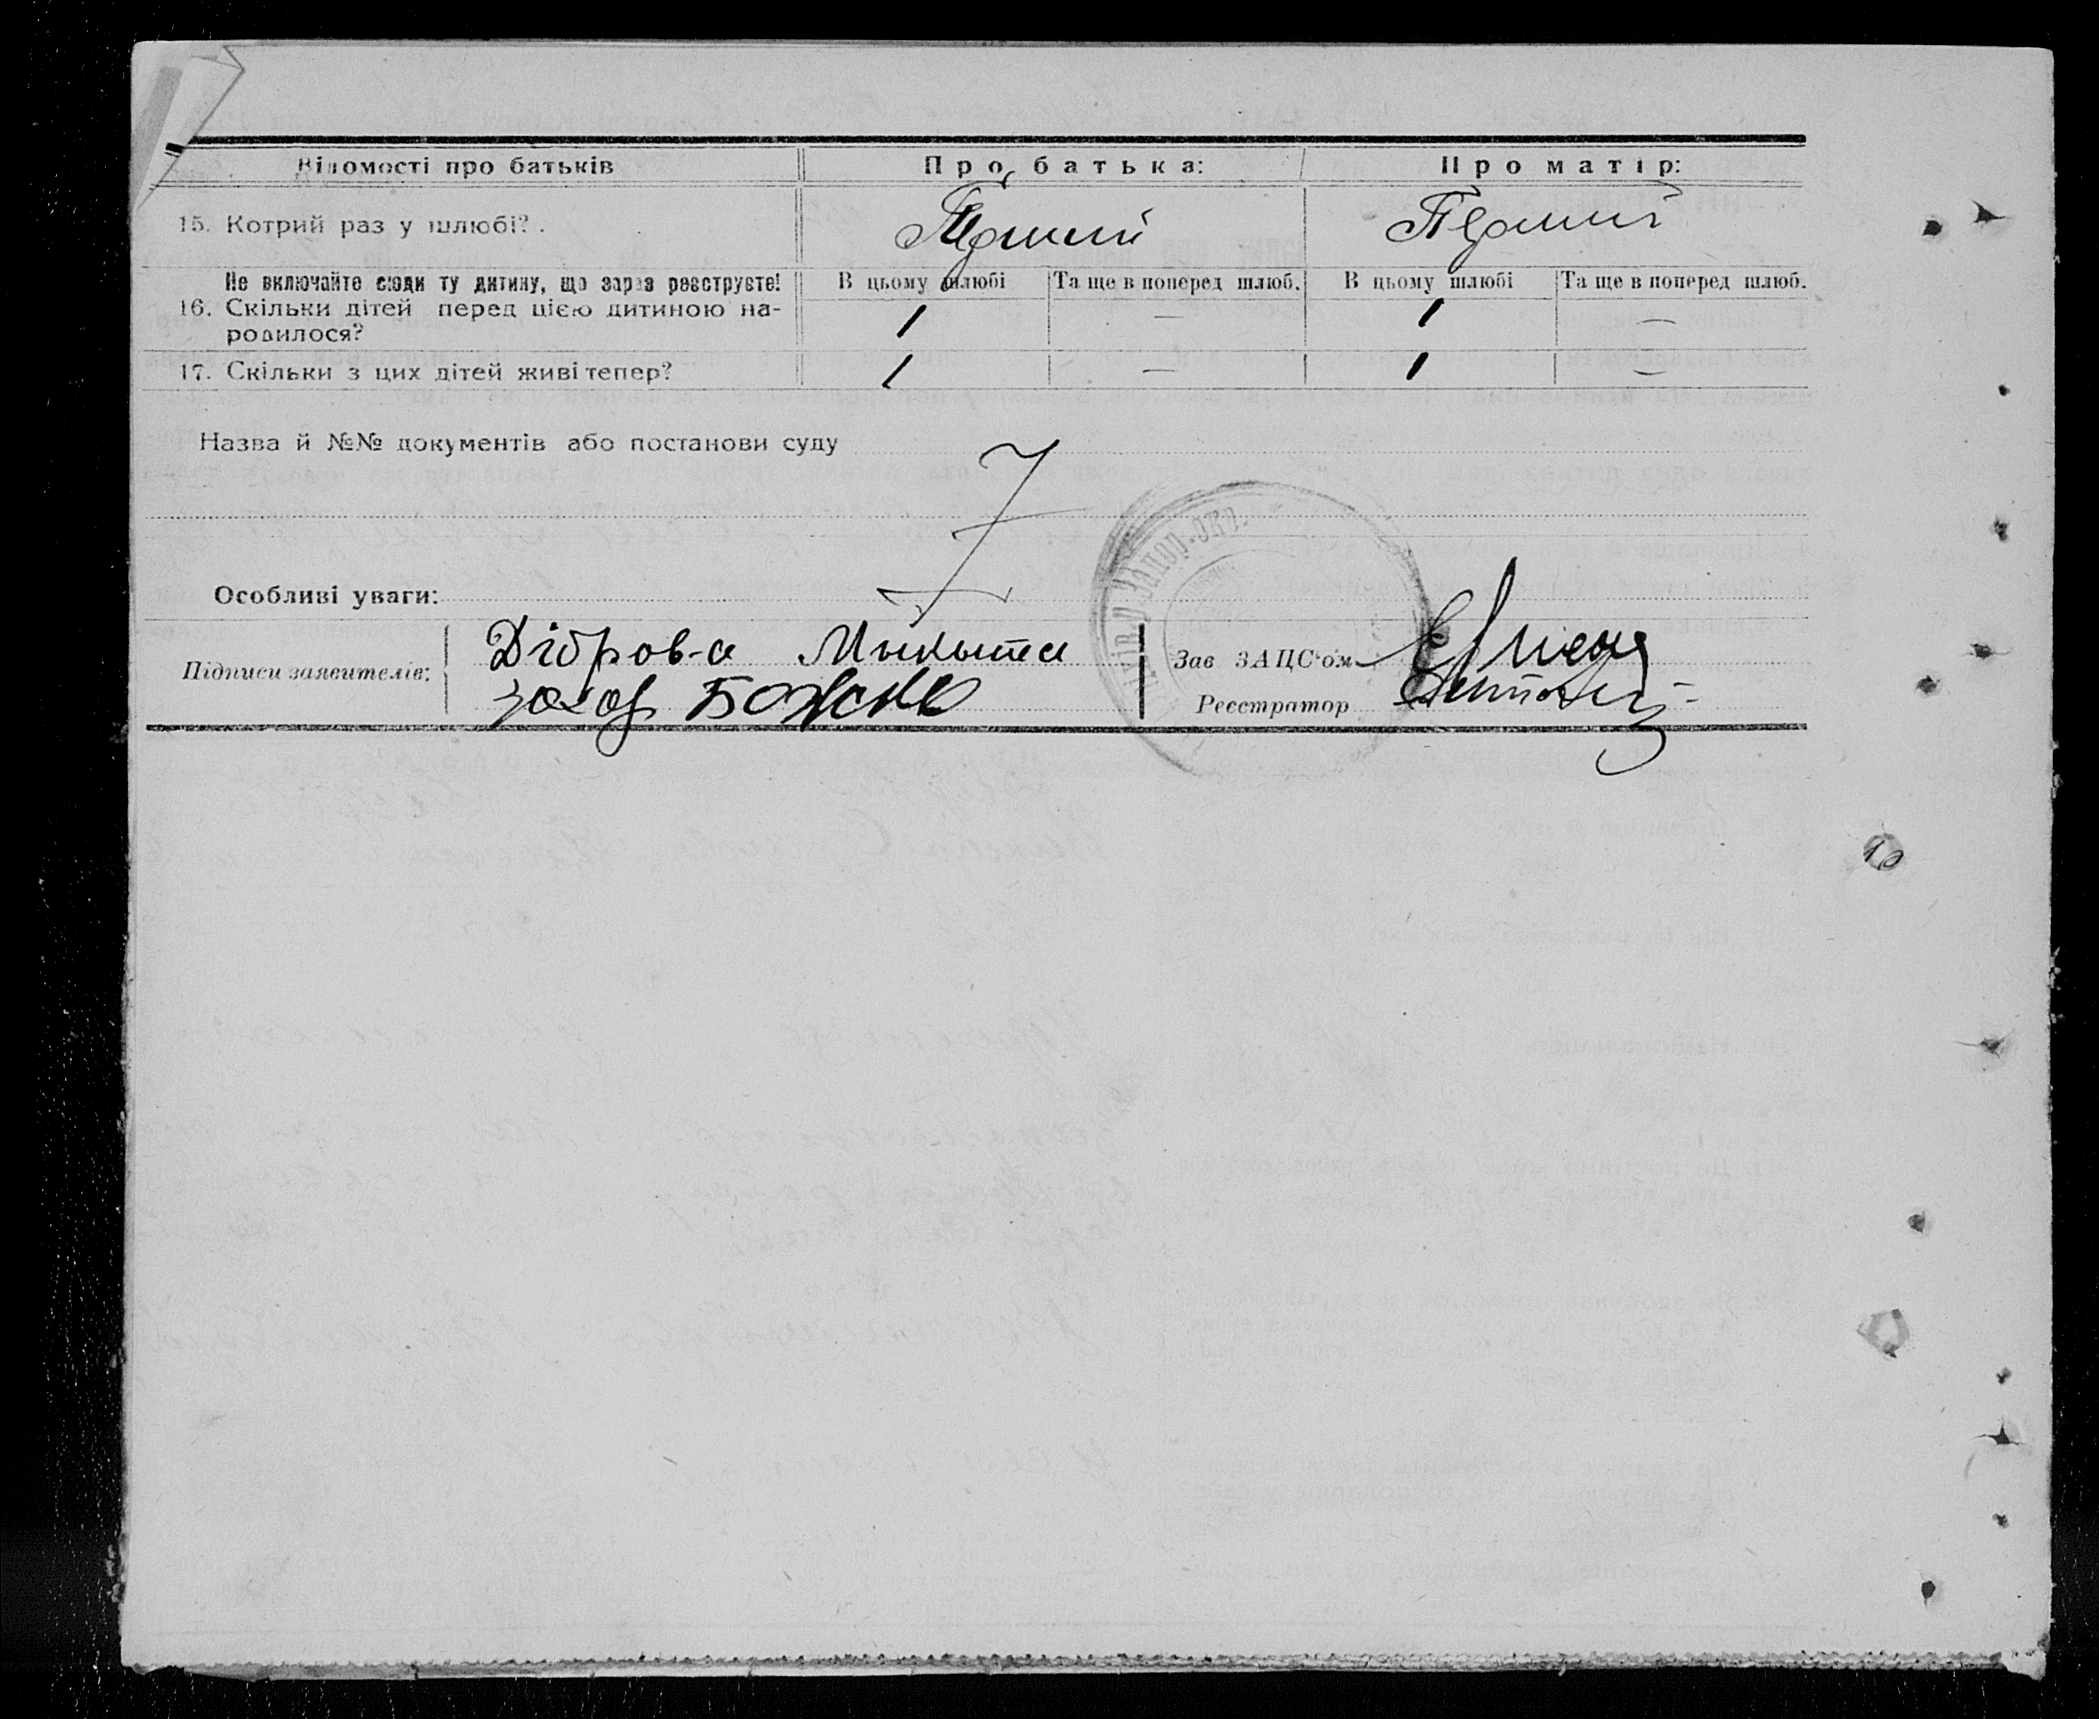 Відомості про батьків Про батька: Про матір:
15. Котрий раз у шлюбі? Перший Перший
Не включайте сюди ту дитину, що зараз реєструєте! В цьому шлюбі Та ще в поперед шлюб. В цьому шлюбі Та ще в поперед шлюб.
16. Скільки дітей перед цією дитиною на-
родилося? 1 — 1 —
17. Скільки з цих дітей живі тепер? 1 — 1 —
Назва й №№ документів або постанови суду
Особливі уваги:
Підписи заявителів: Діброва Микита Зав ЗАЦС'ом
захар Божко Реєстратор
Запор. окр.
10